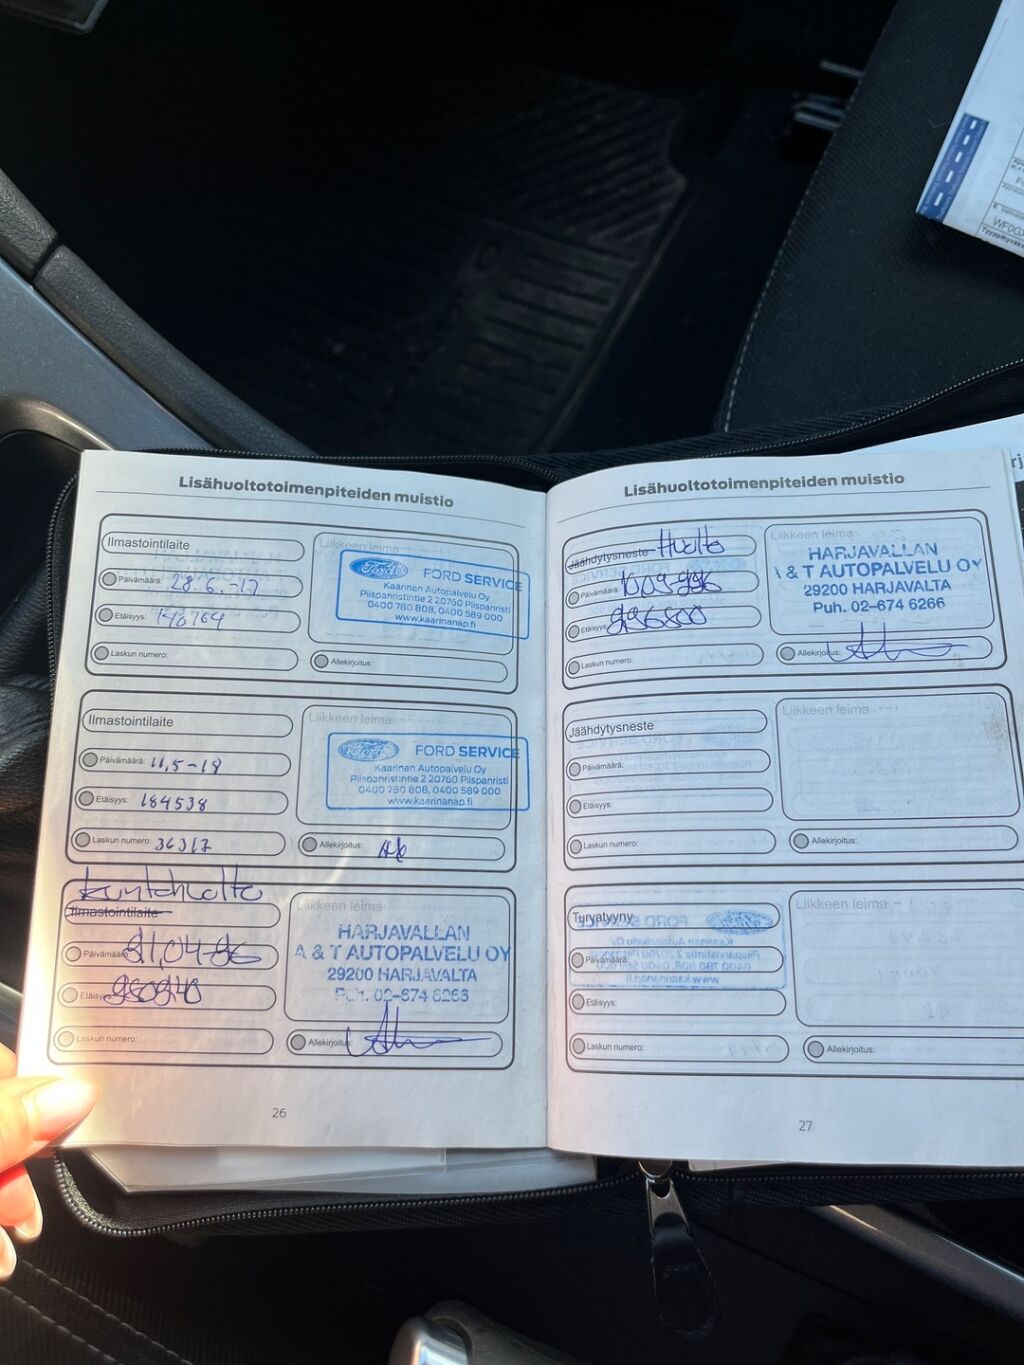 Lisähuoltotoimenpiteiden muistio
Ilmastointilaite
Liikkeen leima
Päivämäärä: 28.6.-17
Etäisyys: 146764
Laskun numero:
Allekirjoitus:
Ford FORD SERVICE
Kaarinan Autopalvelu Oy
Piispanristintie 2 20760 Piispanristi
0400 780 808, 0400 589 000
www.kaarinanap.fi
Ilmastointilaite
Liikkeen leima
Päivämäärä: 11,5-18
Etäisyys: 184538
Laskun numero: 36317
Allekirjoitus:
Ford FORD SERVICE
Kaarinan Autopalvelu Oy
Piispanristintie 2 20760 Piispanristi
0400 780 808, 0400 589 000
www.kaarinanap.fi
Ilmastointilaite
Liikkeen leima
Päivämäärä:
Etäisyys:
Laskun numero:
Allekirjoitus:
HARJAVALLAN
A & T AUTOPALVELU OY
29200 HARJAVALTA
Puh. 02-674 6266
26
Lisähuoltotoimenpiteiden muistio
Jäähdytysneste Huolto
Liikkeen leima
Päivämäärä:
Etäisyys:
Laskun numero:
Allekirjoitus:
HARJAVALLAN
A & T AUTOPALVELU OY
29200 HARJAVALTA
Puh. 02-674 6266
Jäähdytysneste
Liikkeen leima
Päivämäärä:
Etäisyys:
Laskun numero:
Allekirjoitus:
Turvatyyny
Liikkeen leima
Päivämäärä:
Etäisyys:
Laskun numero:
Allekirjoitus:
27